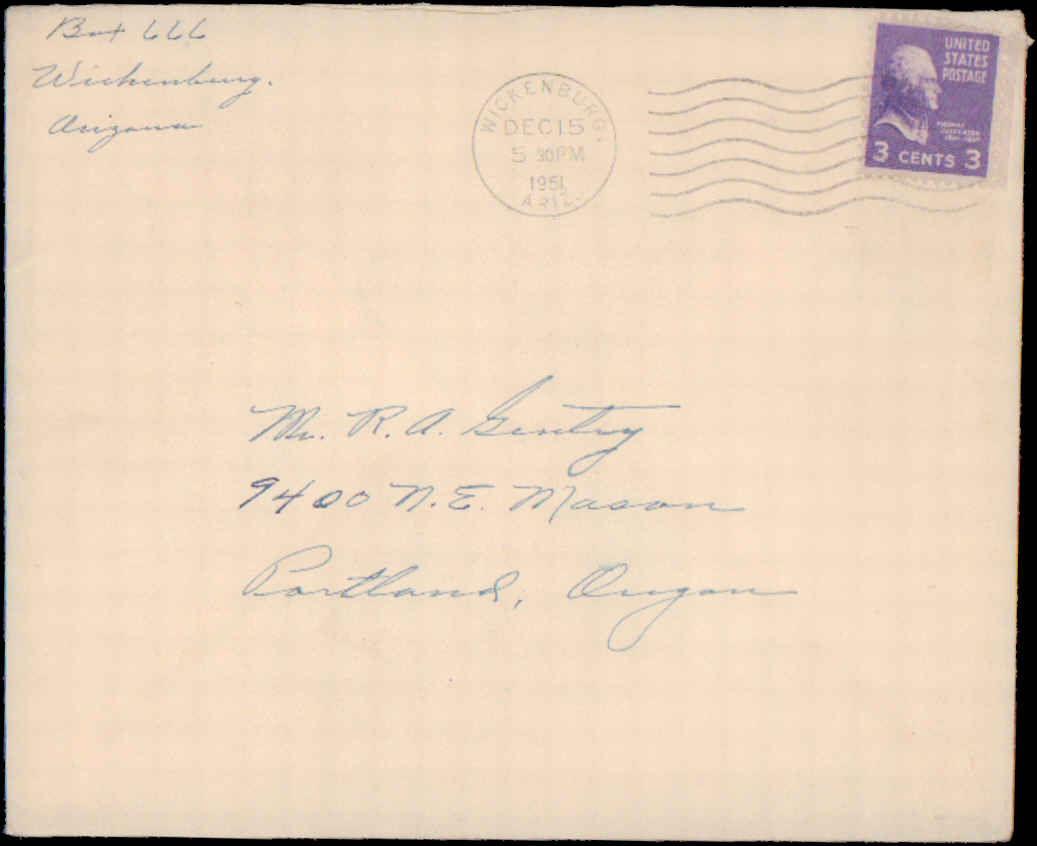 Box 666
Wickenburg.
Arizona
WICKENBURG.
DEC 15
5 30 PM
1951
ARIZ.
UNITED
STATES
POSTAGE
THOMAS
JEFFERSON
3 CENTS 3
Mr. R. A. Gentry
9400 N. E. Mason
Portland, Oregon